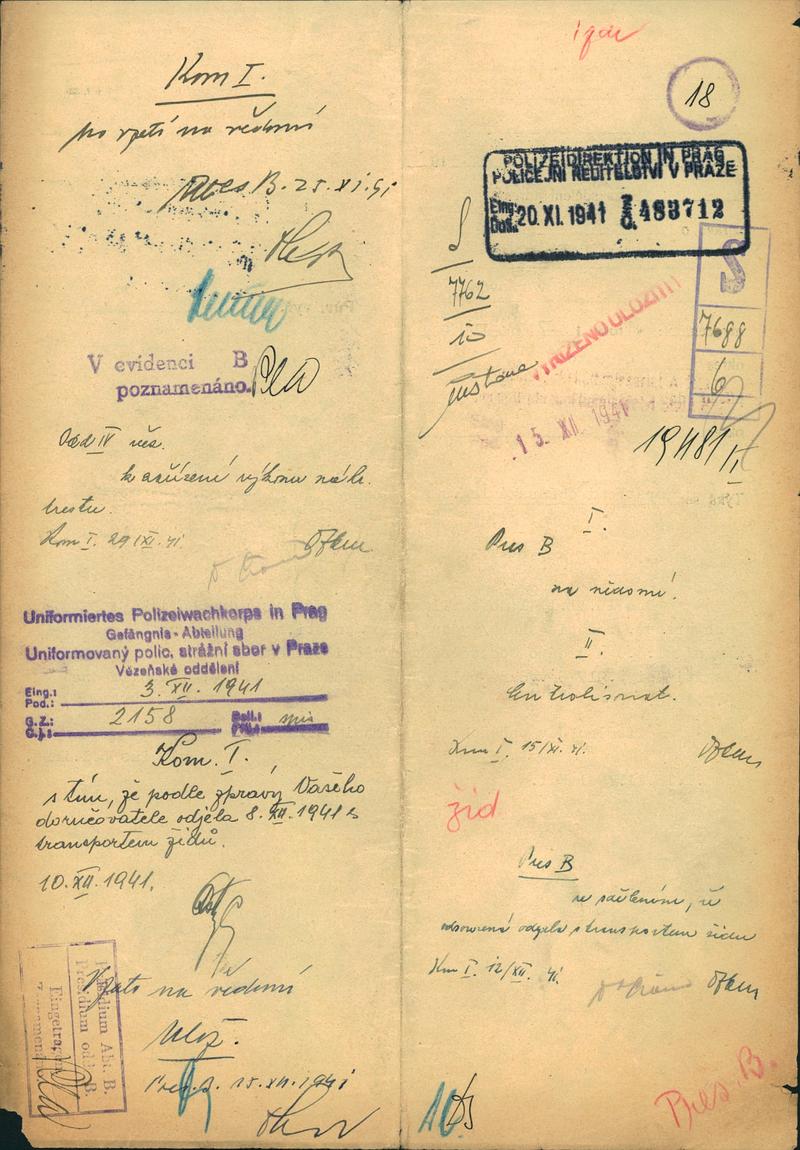 Kom I.
po vzetí na vědomí
Pres B. 25. XI. 41
V evidenci B
poznamenáno.
Odd IV věz.
k zařízení výkonu náhr.
trestu.
Kom I. 29/XI. 41.
Uniformiertes Polizeiwachkorps in Prag
Gefängnis-Abteilung
Uniformovaný polic. strážní sbor v Praze
Vězeňské oddělení
Eing.:
Pod.:
3. XII. 1941
G.Z.:
Č.j.:
2158
Beil.:
spis
Kom. I.
s tím, že podle zprávy Vašeho
doručovatele odjela 8. XII. 1941 s
transportem židů.
10. XII. 1941.
Vzato na vědomí
Ulož.
Pres. B. 15. XII. 1941
Präsidium Abt. B.
Presidium odd. B.
Eingetragen
zaznamenáno
18
POLIZEIDIREKTION IN PRAG
POLICEJNÍ ŘEDITELSTVÍ V PRAZE
Eing.
Došlo
20. XI. 1941
Z.
Č.
483712
S
7762
10
VYŘÍZENO ULOŽITI
15. XII. 1941
S
7688
6
19481/II
I.
Pres B
na vědomí!
II.
Kom I. 15/XI. 41.
žid
Pres B
se sdělením, že
odsouzená odjela s transportem židů
Kom I. 12/XII. 41.
Pres. B.